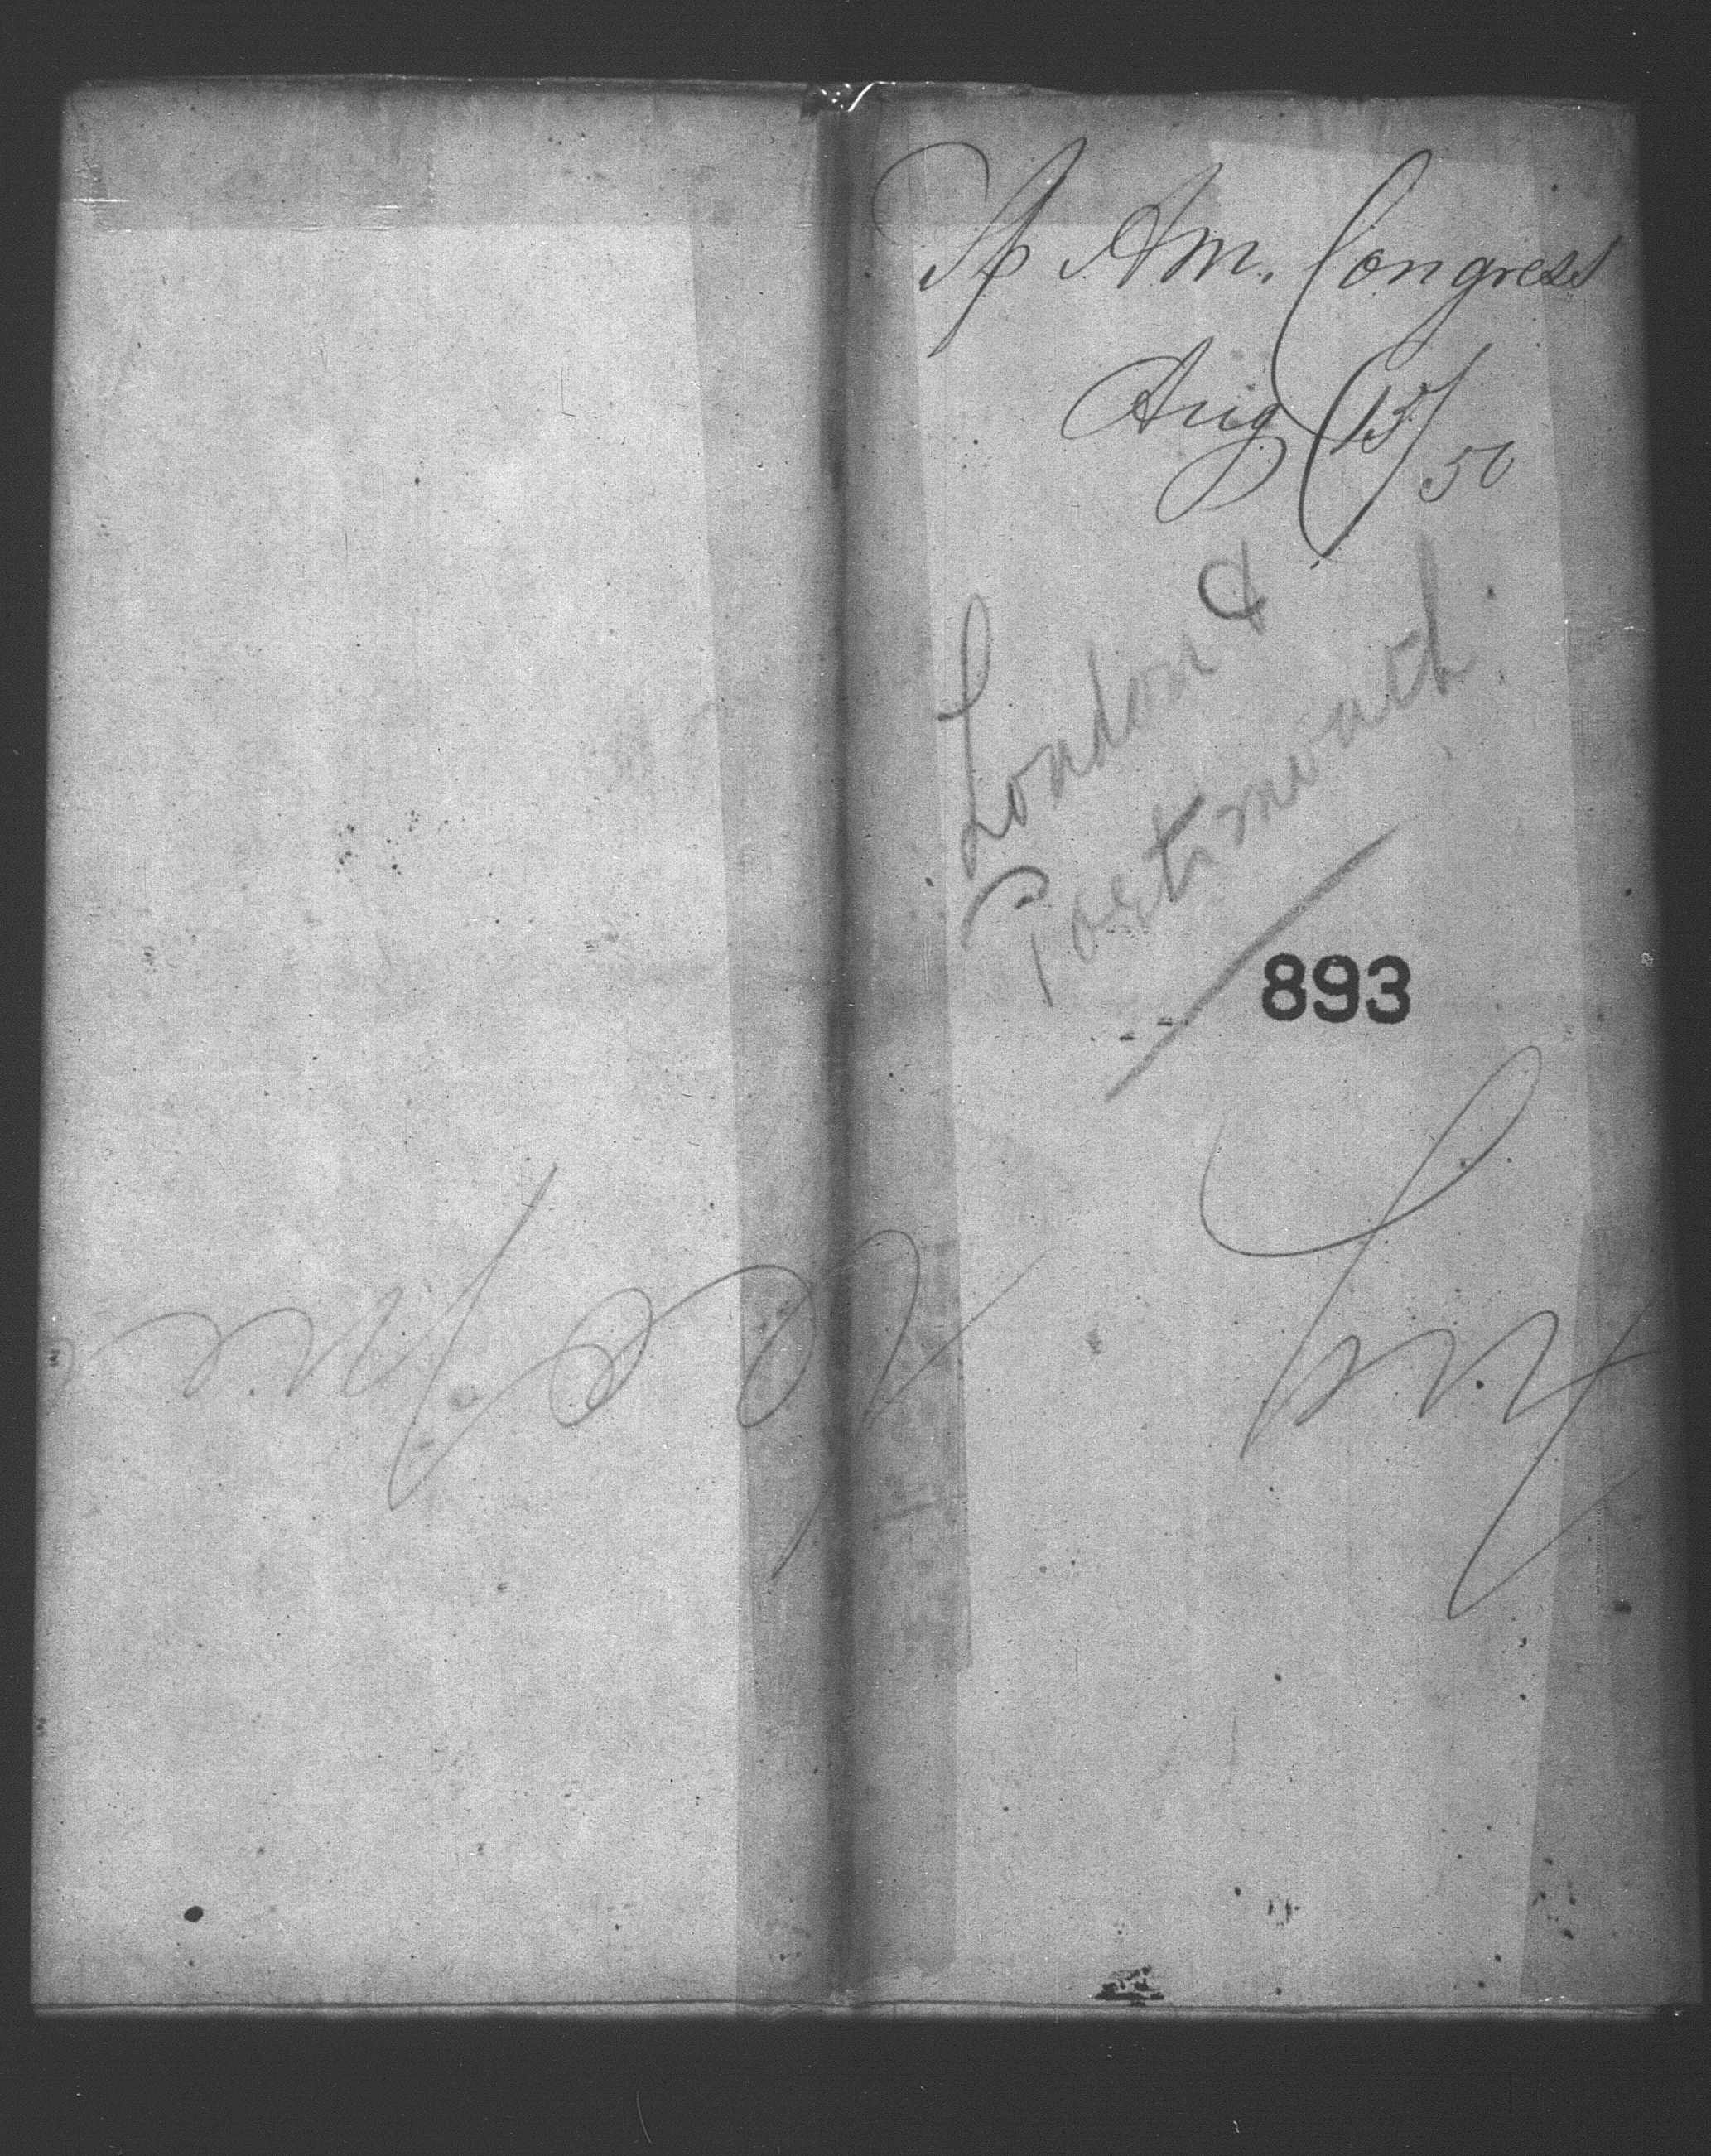 Sp Am. Congress
Aug 15/50
London &
Portsmouth.
893